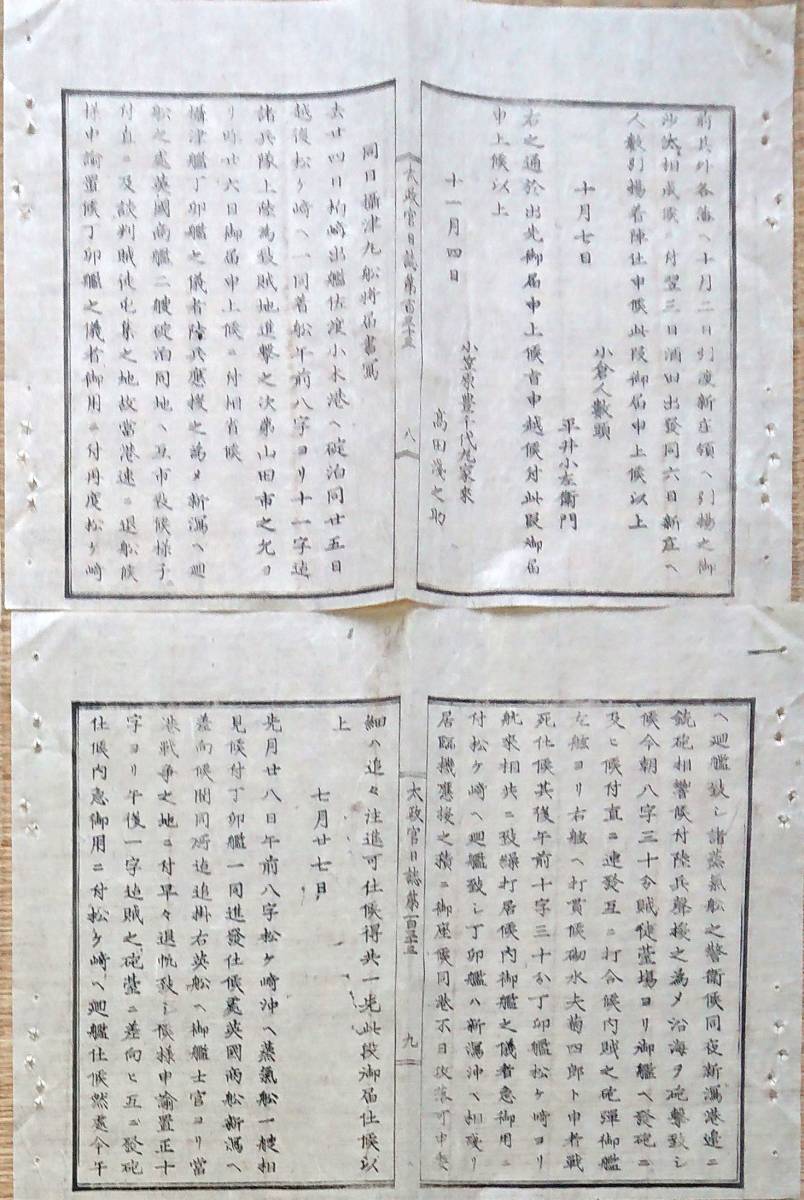 前共外各藩ヘ十月二日引渡新庄領ヘ引揚之御
沙汰相成候ニ付翌三日酒田出發同六日新庄ヘ
人數引揚着陣仕申候此段御届申上候以上
十月七日
小倉人數頭
平井小左衛門
右之通於出先御届申上候旨申越候付此段御届
申上候以上
十一月四日
小笠原豊千代丸家來
高田淺之助
太政官日誌第百五十五
八
同日攝津丸船將届書寫
去廿四日柏崎出艦佐渡小木港ヘ碇泊同廿五日
越後松ケ崎ヘ一同着船午前八字ヨリ十一字迠
諸兵隊上陸為致賊地進擊之次第山田市之允ヨ
リ昨廿六日御届申上候ニ付相省候
攝津艦丁卯艦之儀者陸兵應援之為メ新潟ヘ廻
船之處英國商艦二艘碇泊同地ヘ互市致候様子
付直ニ及談判賊徒屯集之地故當港速ニ退船候
様申諭置候丁卯艦之儀者御用ニ付再度松ケ崎
ヘ廻艦致シ諸蒸氣船之警衛候同夜新潟港邊ニ
銃砲相響候付陸兵聲援之為メ沿海ヲ砲擊致シ
候今朝八字三十分賊徒䑓場ヨリ御艦ヘ發砲ニ
及ヒ候付直ニ連發互ニ打合候内賊之砲彈御艦
左舷ヨリ右舷ヘ打貫候砌水夫菊四郎ト申者戰
死仕候其後午前十字三十分丁卯艦松ケ崎ヨリ
航来相共ニ致繰打居候内御艦之儀者急御用ニ
付松ケ崎ヘ廻艦致シ丁卯艦ハ新潟沖ヘ相殘リ
居臨機應援之積ニ御座候同港不日攻落可申委
太政官日誌第百五十五
九
細ハ追々注進可仕候得共一先此段御届仕候以
上
七月廿七日
先月廿八日午前八字松ケ崎沖ヘ蒸氣船一艘相
見候付丁卯艦一同進發仕候處英國商船新潟ヘ
差向候間同所迠追掛右英船ヘ御艦士官ヨリ當
港戰爭之地ニ付早々退帆致シ候様申諭置正十
字ヨリ午後一字迠賊之砲䑓ニ差向ヒ互ニ發砲
仕候内急御用ニ付松ケ崎ヘ廻艦仕候然處今午